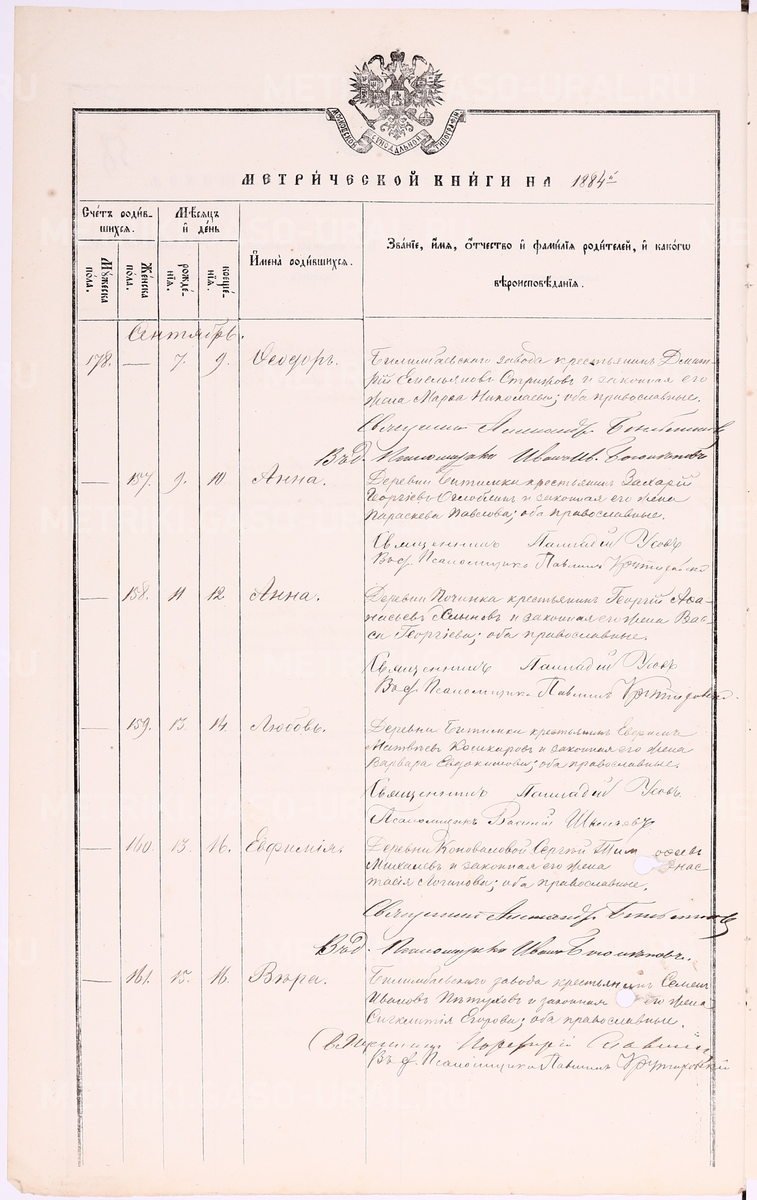 МОСКОВСКОЙ СѴНОДАЛЬНОЙ ТИПОГРАФІИ
МЕТРИ́ЧЕСКОЙ КНИ́ГИ НА 1884й
Сче́тъ роди́в-
шихся.
Мѣ́сяцъ
и҆ де́нь
Мꙋ́жеска
по́ла.
Же́нска
по́ла.
рожде́-
нїя.
креще́-
нїя.
И҆мена̀ роди́вшихся.
Зва́нїе, и҆́мя, ѻ҆́тчество и҆ фами́лїя роди́телей, и҆ како́гѡ
вѣроисповѣ́данїя.
Сентябрь.
178. — 7. 9. Ѳеодоръ. Билимбаевскаго завода крестьянинъ Димит-
рій Емельяновъ Стрижовъ и законная его
жена Марѳа Николаева; оба православные.
Священникъ Александръ
Въ д. Псаломщика Иванъ Ив. Богомоловъ
— 157. 9. 10. Анна. Деревни Битимки крестьянинъ Захарій
Георгіевъ Оглоблинъ и законная его жена
Параскева Павлова; оба православные.
Священникъ Палладій Усовъ
Въ д. Псаломщика Павлинъ
— 158. 11 12. Анна. Деревни Починка крестьянинъ Георгій Аѳа-
насьевъ Хлыновъ и законная его жена Вас-
са Георгіева; оба православные.
Священникъ Палладій Усовъ
Въ д. Псаломщика Павлинъ
— 159. 13. 14. Любовь. Деревни Битимки крестьянинъ Ефремъ
Матвѣевъ Кошкаровъ и законная его жена
Варвара Евдокимова; оба православные.
Священникъ Палладій Усовъ
Псаломщикъ Василій
— 160. 13. 16. Евфимія. Деревни Коноваловой Сергій Тимоѳеевъ
Михалевъ и законная его жена Анас-
тасія Логинова; оба православные.
Священникъ Александръ
Въ д. Псаломщика Иванъ Богомоловъ.
— 161. 15. 16. Вѣра. Билимбаевскаго завода крестьянинъ Семенъ
Ивановъ Пѣтуховъ и законная его жена
Сигклитія Егорова; оба православные.
Священникъ Порфирій
Въ д. Псаломщика Павлинъ